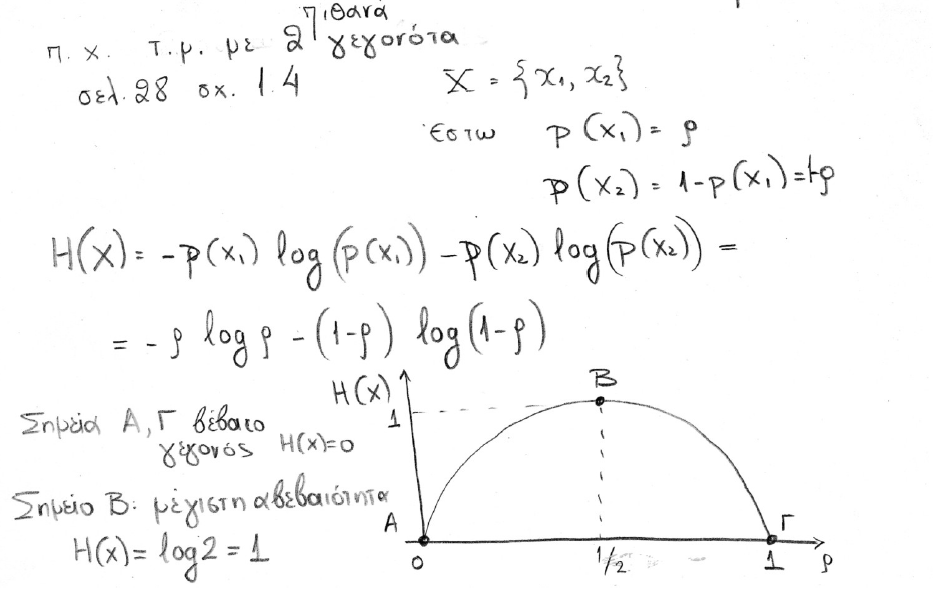 π.χ. τ.μ. με 2 πιθανά γεγονότα
σελ. 28 σχ. 1.4
X = {x₁, x₂}
Έστω p(x₁) = ρ
p(x₂) = 1-p(x₁)=1-ρ
H(X) = -p(x₁) log(p(x₁)) - p(x₂) log(p(x₂)) =
= - ρ log ρ - (1-ρ) log(1-ρ)
H(X)
B
1
Σημεία Α, Γ βέβαιο
γεγονός H(X)=0
Σημείο Β: μέγιστη αβεβαιότητα
H(X) = log2 = 1
A
Γ
0
1/2
1
ρ